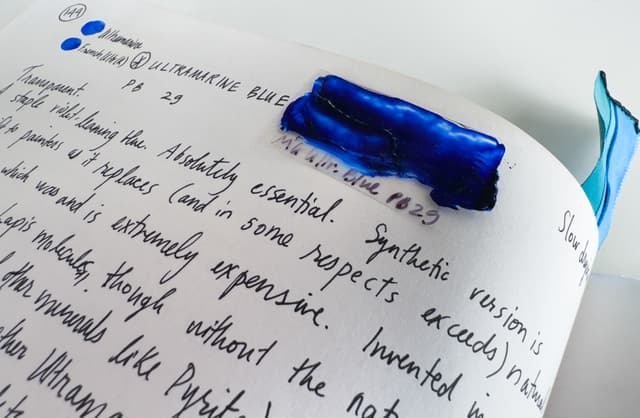 144
Ultramarine
French Ultra(A) * ULTRAMARINE BLUE
PB 29
M. Ultr. Blue PB29
Transparent.
staple violet-leaning blue. Absolutely essential. Synthetic version is
to painters as it replaces (and in some respects exceeds) natural
which was and is extremely expensive. Invented in
Lapis molecules, though without the nat
other minerals like Pyrite)
other Ultrama
Slow dry